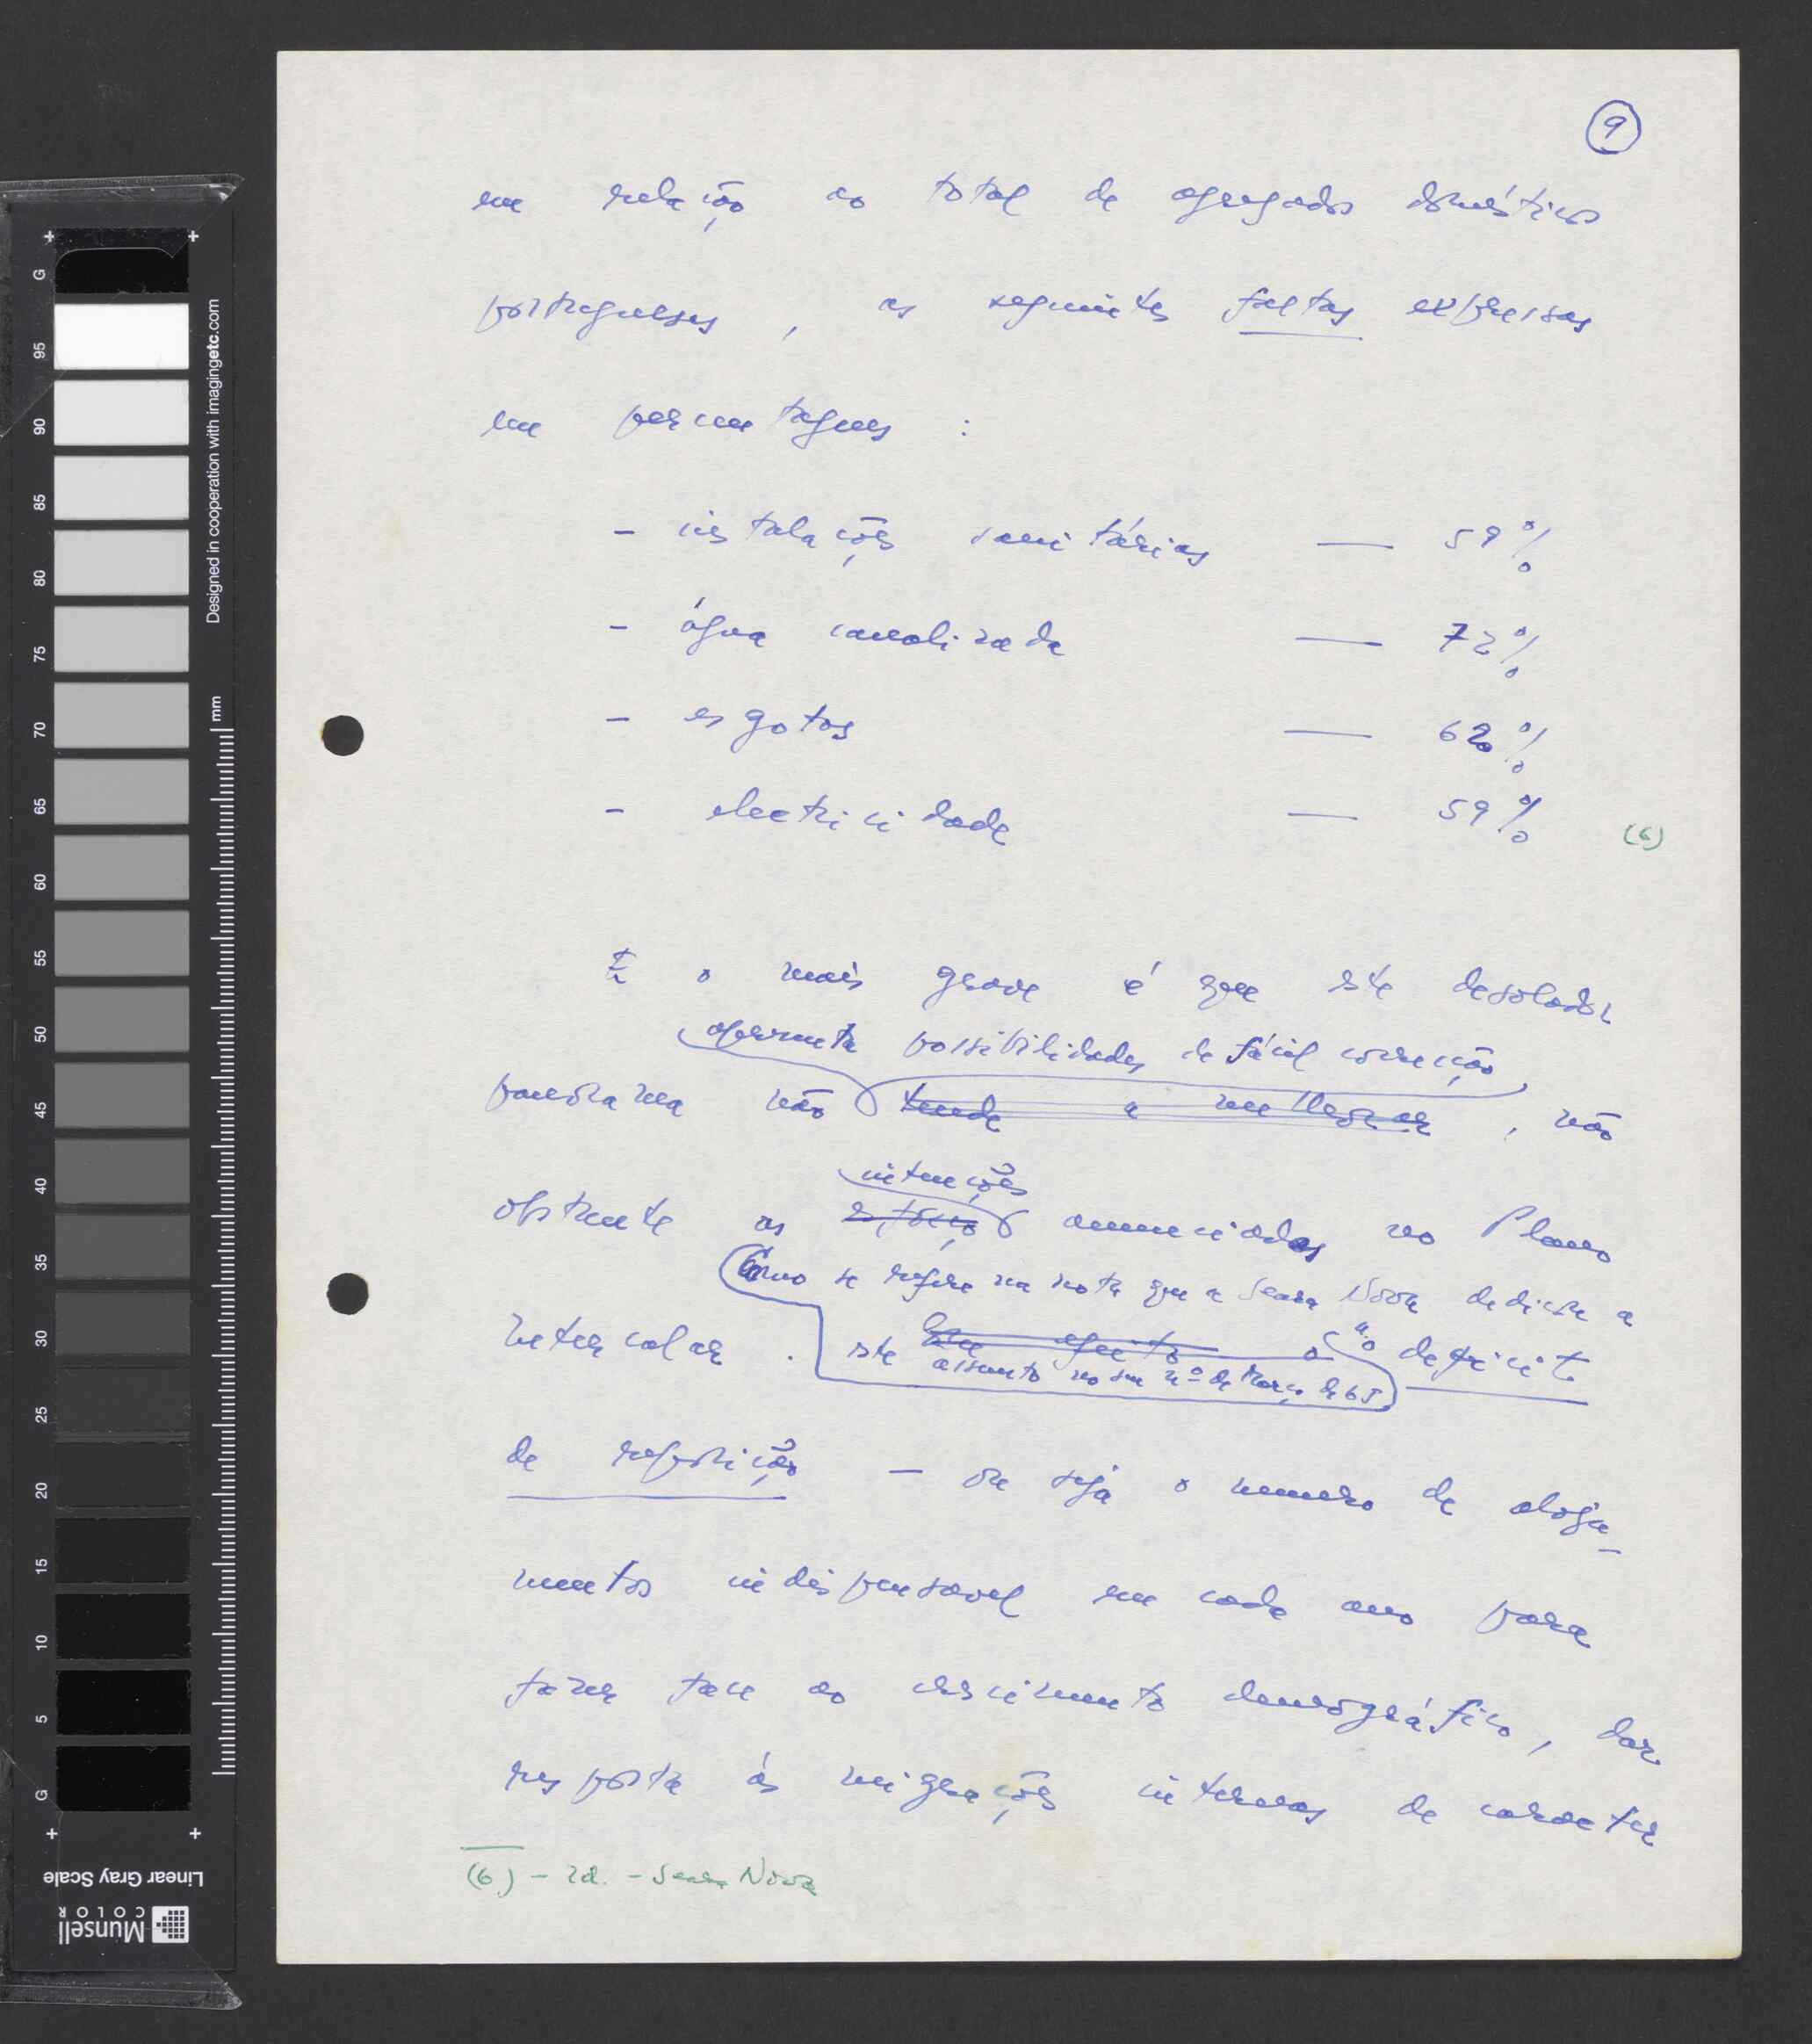 9
em relação ao total de agregados domésticos
portugueses , as seguintes faltas expressas
em percentagens :
- instalações sanitárias — 59%
- água canalizada — 72%
- esgotos — 62%
- electricidade — 59% (6)
E o mais grave é que este desolador
apresenta possibilidades de fácil correcção
panorama não tende a melhorar , não
intenções
obstante as esforço anunciadas no Plano
Como se refere na nota que a Seara Nova dedicou a
Intercalar . este o "o deficit
assunto no seu nº de Março de 65
de reposição — ou seja o numero de aloja-
mentos indispensavel em cada ano para
fazer face ao crescimento demográfico, dar
resposta ás migrações internas de caracter
(6) - Id. - Seara Nova
G
95
90
85
80
75
70
65
60
55
50
45
40
35
30
25
20
15
10
5
G
mm
Designed in cooperation with imagingetc.com
Linear Gray Scale
Munsell
COLOR